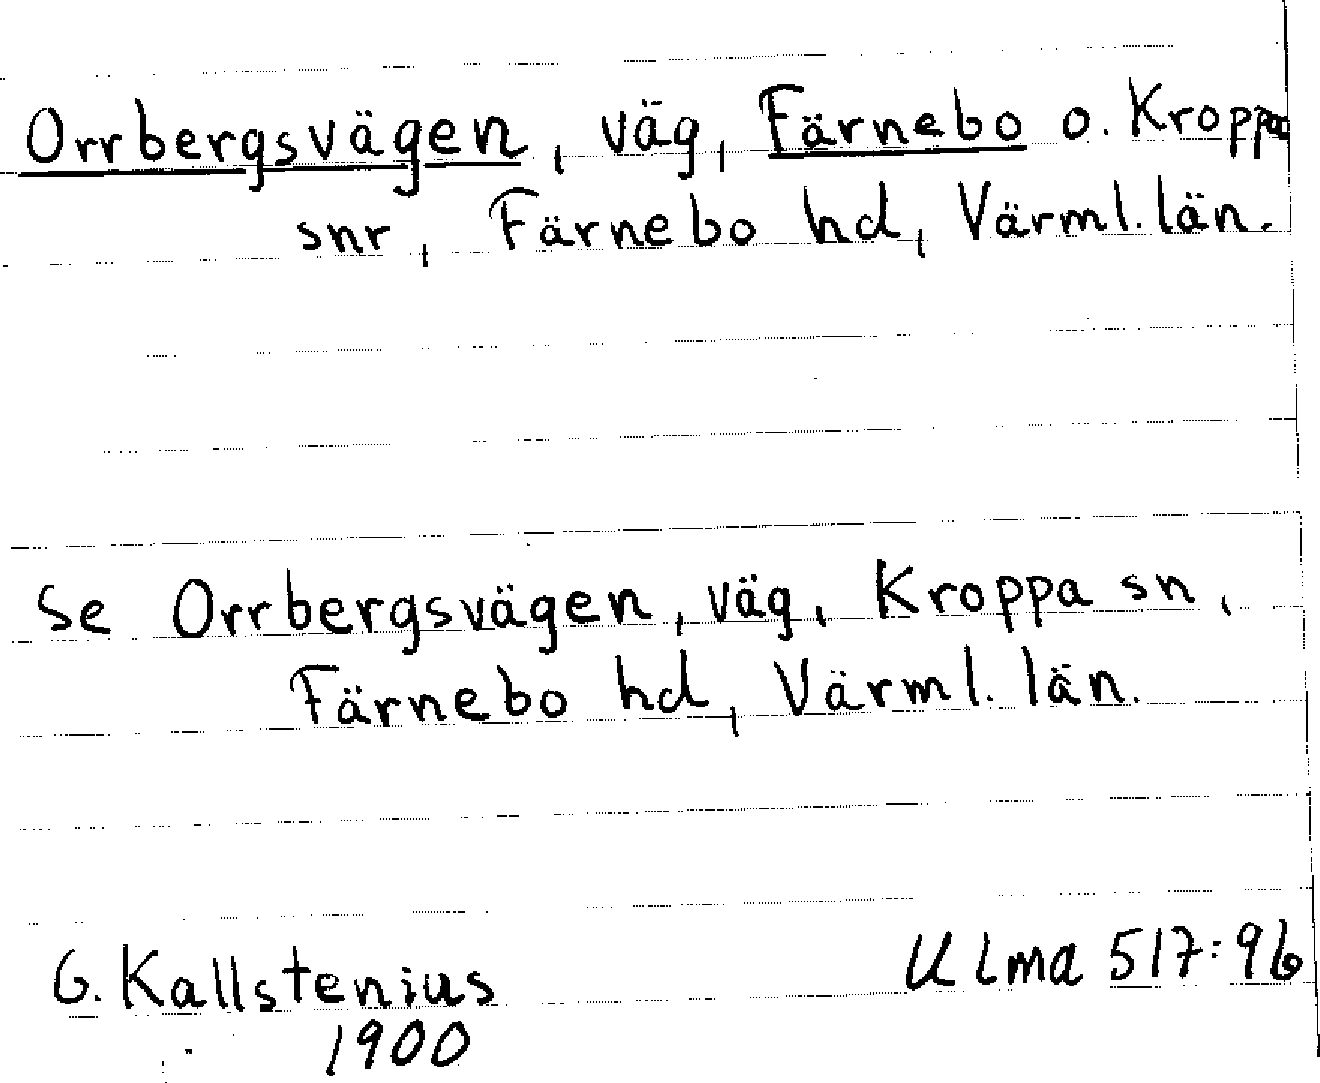 Orrbergsvägen, väg, Färnebo o. Kroppa
snr, Färnebo hd, Värml. län.
Se Orrbergsvägen, väg, Kroppa sn,
Färnebo hd, Värml. län.
G. Kallstenius
1900
Ulma 517:96